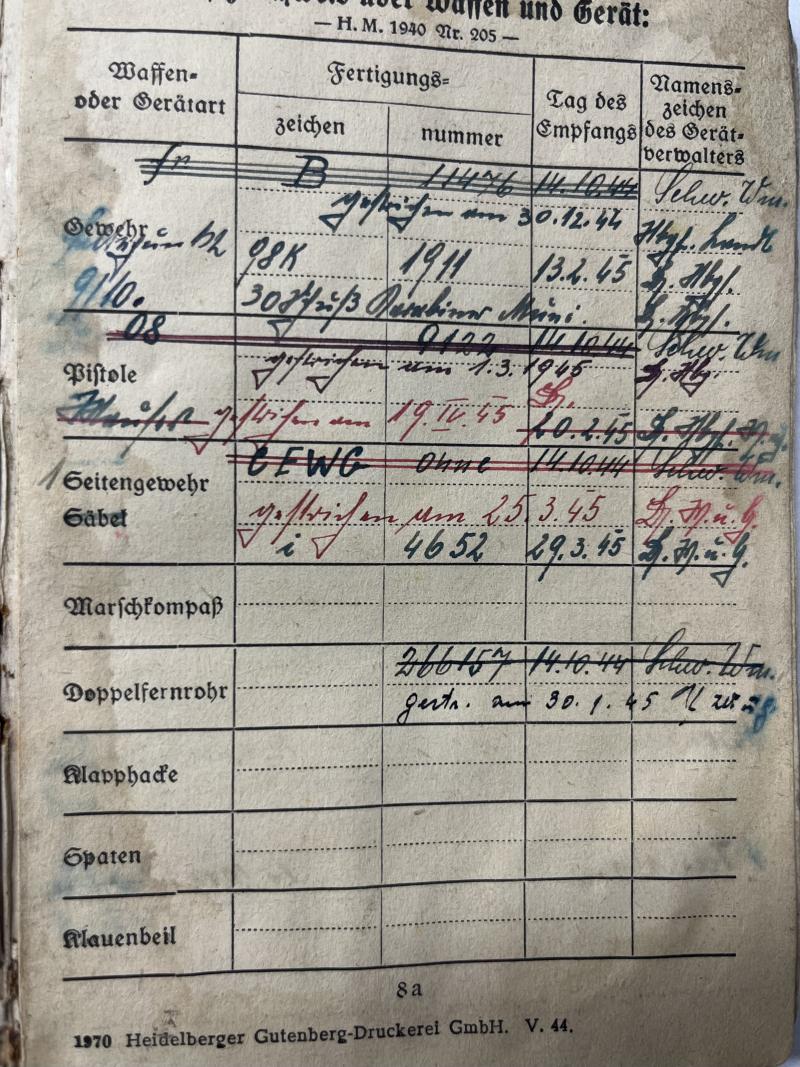 über Waffen und Gerät:
— H. M. 1940 Nr. 205 —
Waffen-
oder Gerätart
Fertigungs-
zeichen
nummer
Tag des
Empfangs
Namens-
zeichen
des Gerät-
verwalters
fr B 11476 14.10.44 Schw. Wm.
gestrichen am 30.12.44
Gewehr
98K 1911 13.2.45
9/10. 30 Schuß Karabiner Muni.
08 9122 14.10.44 Schw. Wm
gestrichen am 1.3.1945
Pistole
gestrichen am 19.IV.45
20.2.45
1 Seitengewehr
CEWG ohne 14.10.44 Schw. Wm.
Säbel
gestrichen am 25.3.45
i 4652 29.3.45
Marschkompaß
266157 14.10.44 Schw. Wm.
Doppelfernrohr
gestr. am 30.1.45
Klapphacke
Spaten
Klauenbeil
8a
1970 Heidelberger Gutenberg-Druckerei GmbH. V. 44.